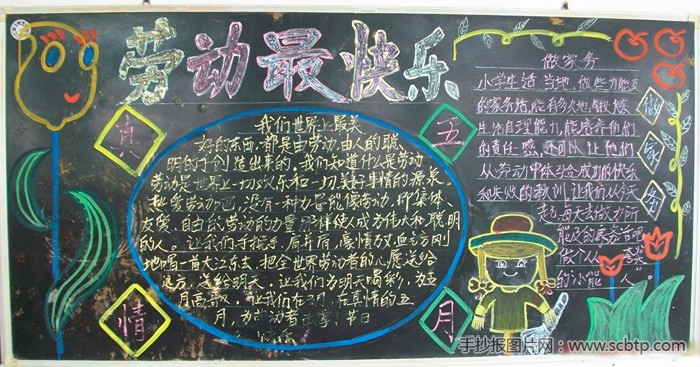 劳动最快乐
真
情
五
月
我们世界上最美
好的东西,都是由劳动、由人的聪
明的手创造出来的,我们知道什么是劳动
劳动是世界上一切欢乐和一切美好事情的源泉。
热爱劳动吧,没有一种力量能像劳动,即集体、
友爱、自由的劳动的力量那样使人成为伟大和聪明
的人。让我们手挽手、肩并肩、豪情
地唱一首大江东去,把全世界劳动者的心愿送给
远方,送给明天,让我们为明天喝彩,为五
月高歌,让我们在五月,在真情的五
月,为劳动者
节日
做家务
小学生适当地,做些力能及
的家务活,能有多人地锻炼
生活自理能力,能培养他们
的责任感,还可以让他们
从劳动中体会成功的快乐
和失败的教训,让我们从今天
起,每天多做力所
能及的家务活吧
做个人
的“小能人”。
做
家
务
手抄报图片网:www.scbtp.com